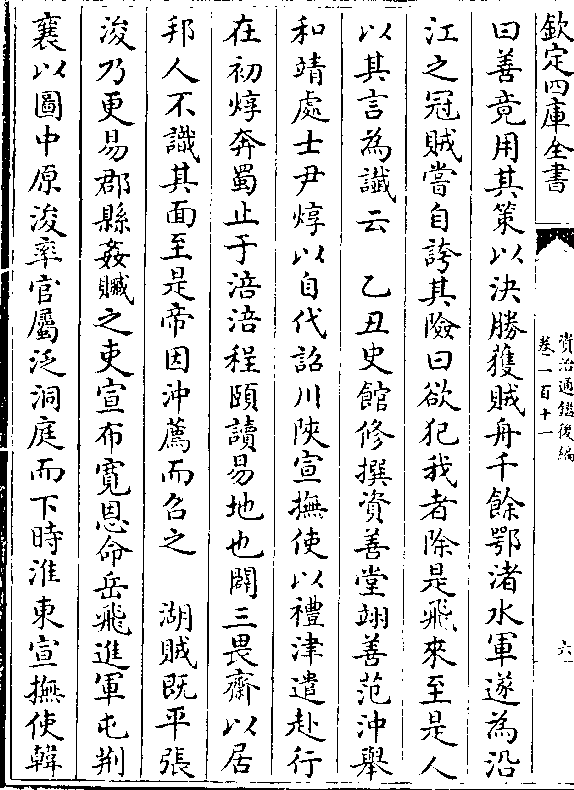 欽定四庫全書
資治通鑑後編
卷一百十一
六
曰善竟用其策以決勝獲賊舟千餘鄂渚水軍遂為沿
江之冠賊嘗自誇其險曰欲犯我者除是飛來至是人
以其言為讖云　乙丑史館修撰資善堂翊善范沖舉
和靖處士尹焞以自代詔川陜宣撫使以禮津遣赴行
在初焞奔蜀止于涪涪程頤讀易地也闢三畏齋以居
邦人不識其面至是帝因沖薦而召之　湖賊既平張
浚乃更易郡縣姦贓之吏宣布寛恩命岳飛進軍屯荆
襄以圖中原浚率官屬泛洞庭而下時淮東宣撫使韓